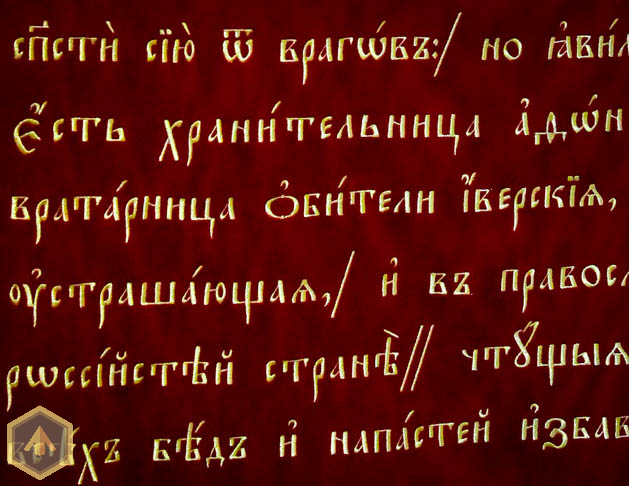 сп҃сти̑ сїю̀ ѿ врагѡ́въ:/ но ꙗ҆ви́л
Є҆́сть храни́тельница а҆дѡ́н
врата́рница ѻ҆би́тели І҆́верскїѧ,
оу҆страша́ющаѧ,/ и҆ въ правосл
рѡссі́йстѣй странѣ̀// чтꙋ́щыѧ
всѣ́хъ бѣ́дъ и҆ напа́стей и҆збав